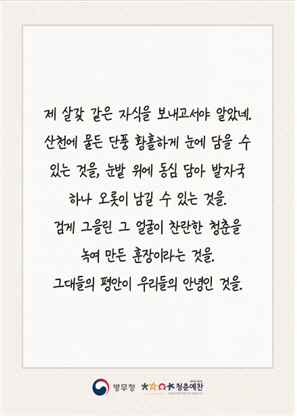 제 살갗 같은 자식을 보내고서야 알았네.
산천에 물든 단풍 황홀하게 눈에 담을 수
있는 것을, 눈발 위에 동심 담아 발자국
하나 오롯이 남길 수 있는 것을.
검게 그을린 그 얼굴이 찬란한 청춘을
녹여 만든 훈장이라는 것을.
그대들의 평안이 우리들의 안녕인 것을.
병무청 청춘예찬